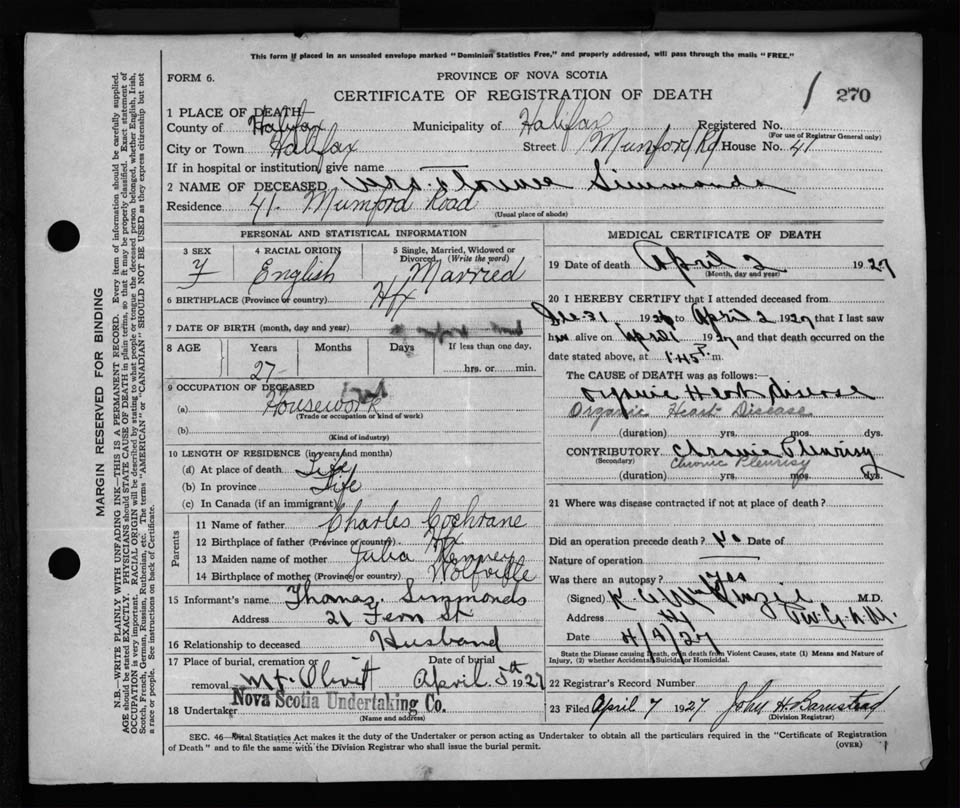 This form if placed in an unsealed envelope marked "Dominion Statistics Free," and properly addressed, will pass through the mails "FREE."
FORM 6.
PROVINCE OF NOVA SCOTIA
CERTIFICATE OF REGISTRATION OF DEATH
1 270
1 PLACE OF DEATH
County of Halifax Municipality of Halifax Registered No.
(For use of Registrar General only)
City or Town Halifax Street Mumford Rd House No. 41
If in hospital or institution, give name
2 NAME OF DECEASED Mrs. Florence Simmonds
Residence 41. Mumford Road
(Usual place of abode)
PERSONAL AND STATISTICAL INFORMATION
3 SEX 4 RACIAL ORIGIN 5 Single, Married, Widowed or Divorced, (Write the word)
F English Married
6 BIRTHPLACE (Province or country) Hfx
7 DATE OF BIRTH (month, day and year)
8 AGE Years Months Days If less than one day,
27 hrs. or min.
9 OCCUPATION OF DECEASED
(a) Housework
(Trade or occupation or kind of work)
(b)
(Kind of industry)
10 LENGTH OF RESIDENCE (in years and months)
(a) At place of death Life
(b) In province Life
(c) In Canada (if an immigrant)
Parents
11 Name of father Charles Cochrane
12 Birthplace of father (Province or country) Hfx
13 Maiden name of mother Julia
14 Birthplace of mother (Province or country) Wolfville
15 Informant's name Thomas. Simmonds
Address 21 Fern St
16 Relationship to deceased Husband
17 Place of burial, cremation or removal Mt. Olivit Date of burial April 5th 1927
18 Undertaker Nova Scotia Undertaking Co.
(Name and address)
MEDICAL CERTIFICATE OF DEATH
19 Date of death April 2 1927
(Month, day and year)
20 I HEREBY CERTIFY that I attended deceased from
Dec 31 1926 to April 2 1927 that I last saw
h alive on April 1927 and that death occurred on the
date stated above, at 1.45 P. m.
The CAUSE OF DEATH was as follows:—
Organic Heart Disease
Organic Heart Disease
(duration) yrs. mos. dys.
CONTRIBUTORY Chronic Pleurisy
(Secondary) Chronic Pleurisy
(duration) yrs. mos. dys.
21 Where was disease contracted if not at place of death?
Did an operation precede death? No Date of
Nature of operation
Was there an autopsy? Yes
(Signed) K A McKenzie M.D.
Address Hfx
Date 4/4/27
State the Disease causing Death, or in death from Violent Causes, state (1) Means and Nature of Injury, (2) whether Accidental, Suicidal or Homicidal.
22 Registrar's Record Number
23 Filed April 7 1927 John H. Barnstead
(Division Registrar)
SEC. 46—Vital Statistics Act makes it the duty of the Undertaker or person acting as Undertaker to obtain all the particulars required in the "Certificate of Registration
of Death" and to file the same with the Division Registrar who shall issue the burial permit. (OVER)
MARGIN RESERVED FOR BINDING
N.B.—WRITE PLAINLY WITH UNFADING INK—THIS IS A PERMANENT RECORD. Every item of information should be carefully supplied.
AGE should be stated EXACTLY. PHYSICIANS should STATE CAUSE OF DEATH in plain terms, so that it may be properly classified. Exact statement of
OCCUPATION is very important. RACIAL ORIGIN will be described by stating to what people or tongue the deceased person belonged, whether English, Irish,
Scotch, French, German, Russian, Ruthenian, etc. The terms "AMERICAN" or "CANADIAN" SHOULD NOT BE USED as they express citizenship but not
a race or people. See instructions on back of Certificate.